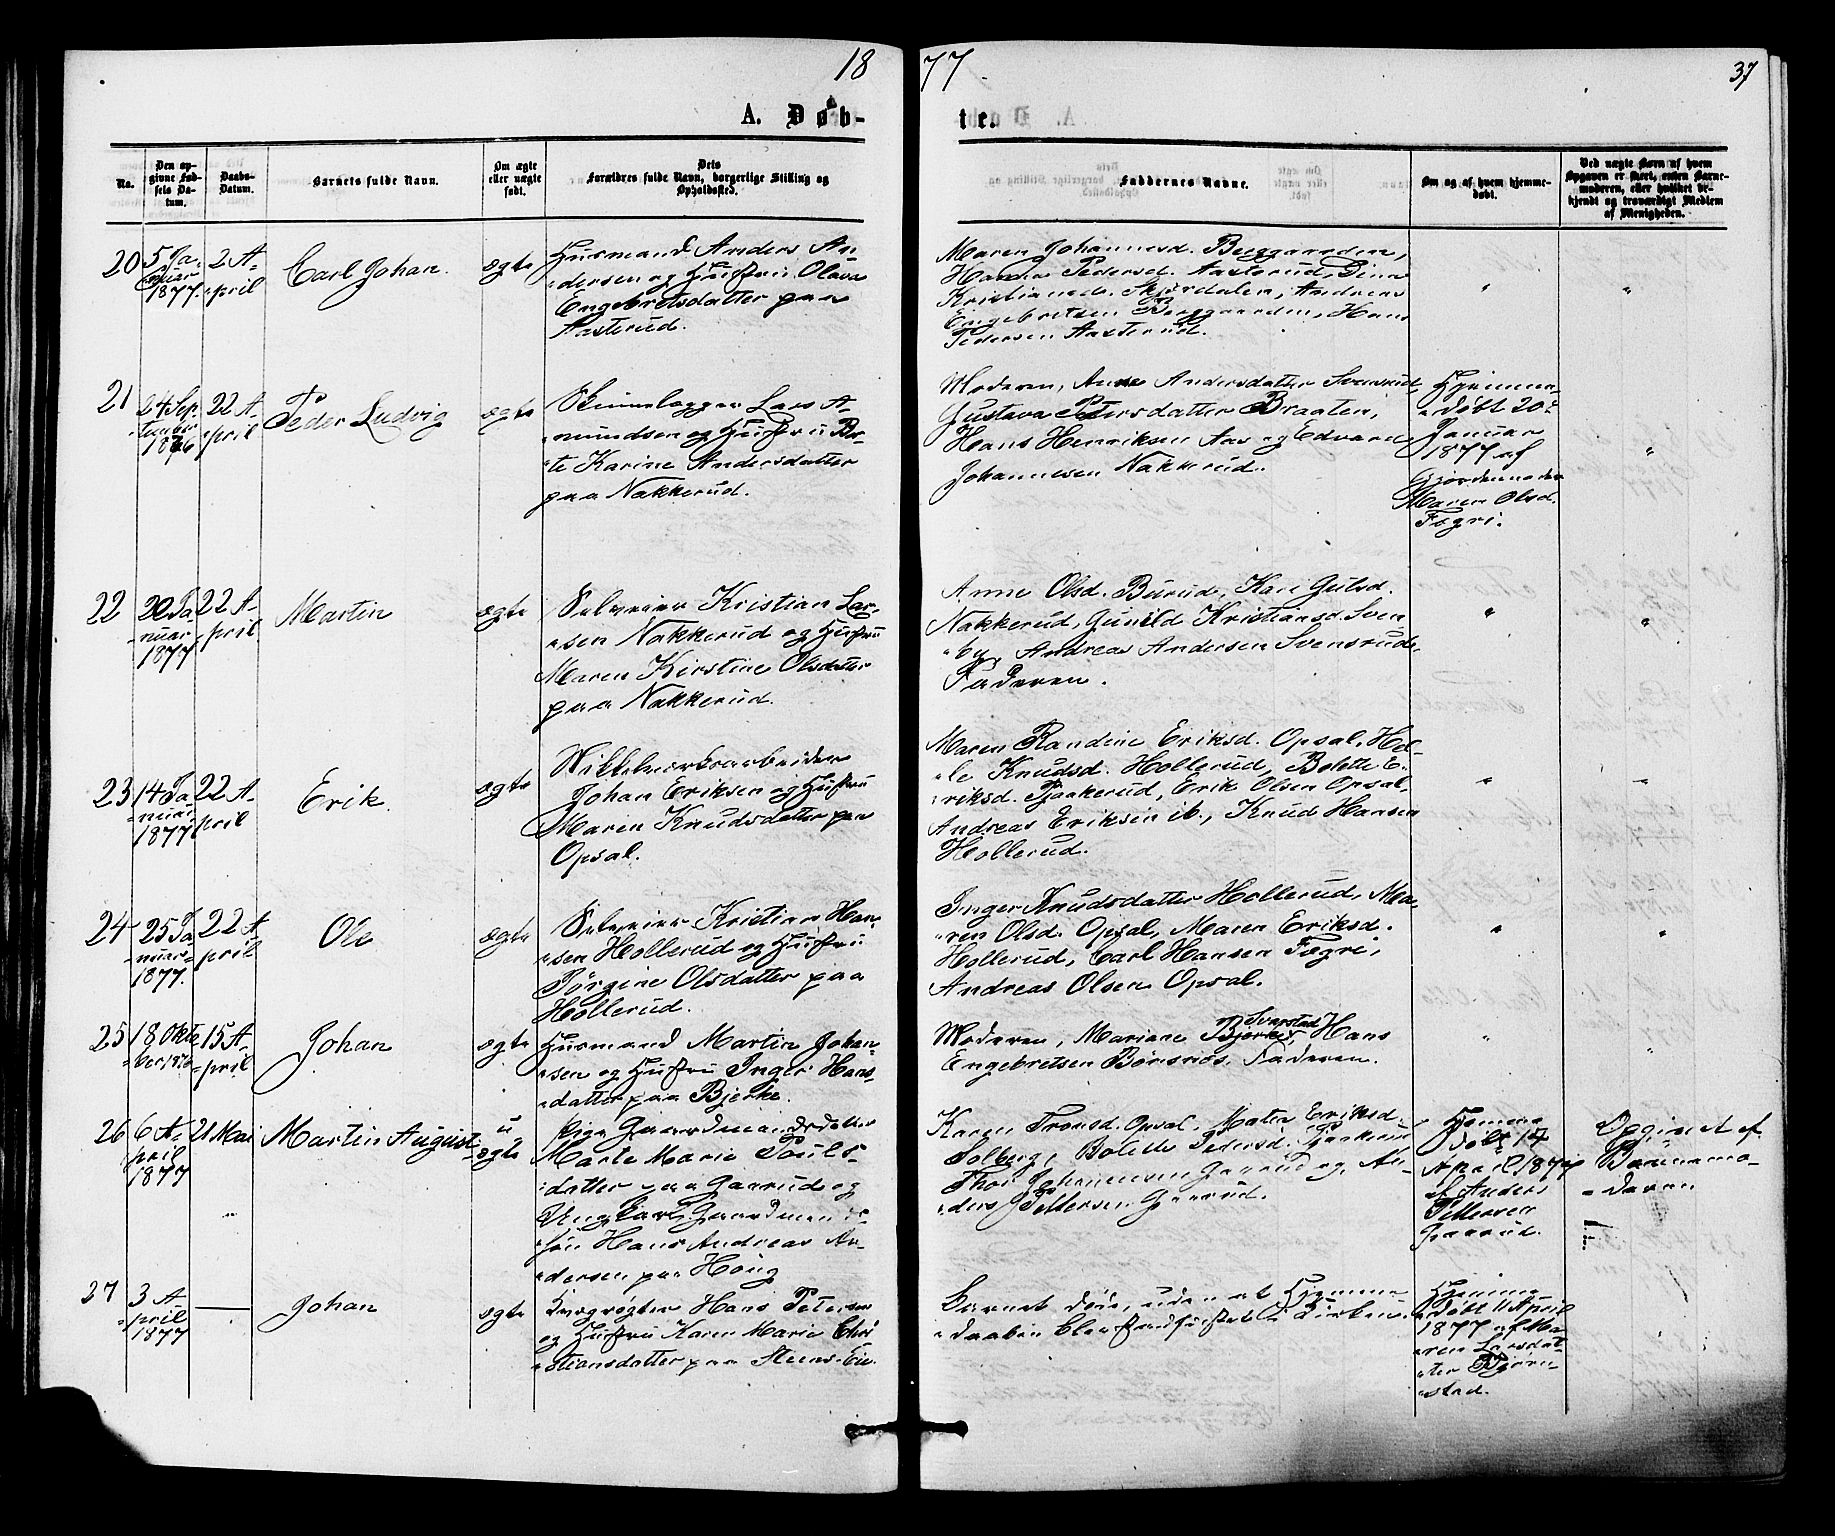 1877
37
A. Døbte.
No.
Den opgivne Fødsels Datum.
Daabs-Datum.
Barnets fulde Navn.
Om ægte eller uægte født.
Dets Forældres fulde Navn, borgerlige Stilling og Opholdssted.
Faddernes Navne.
Om og af hvem hjemmedøbt.
Ved uægte Børn af hvem Opgaven er skeet, enten Barnemoderen, eller hvilket bekjendt og troværdigt Medlem af Menigheden.
20
5 Ja-
nuar
1877.
2 A-
pril
Carl Johan.
ægte
Husmand Anders An-
dersen og Hustru Olava
Engebretsdatter paa
Aasterud.
Maren Johannesd. Buggaarden,
Hanna Pedersd. Aasterud, Dina
Kristiansd. Skjørdalen, Andreas
Engebretsen Buggaarden, Hans
Pedersen Aasterud.
"
"
21
24 Sep-
tember
1876
22 A-
pril
Peder Ludvig
ægte
Skinnelægger Lars A-
mundsen og Hustru Be-
te Karine Andersdatter
paa Nakkerud.
Moderen, Anne Andersdatter Svensrud,
Gustava Petersdatter Braaten,
Hans Henriksen Aas og Edvard
Johannesen Nakkerud.
Hjemme-
døbt 20de
Januar
1877 af
Gjordemoder
Maren Olsd.
Fægri.
"
22
20 Ja-
nuar
1877
22 A-
pril
Martin
ægte
Selveier Kristian Lar-
sen Nakkerud og Hustru
Maren Kirstine Olsdatter
paa Nakkerud.
Anne Olsd. Burud, Kari Gulsd.
Nakkerud, Gunild Kristiansd. Sven-
by, Andreas Andersen Svensrud,
Faderen.
"
"
23
14 Ja-
nuar
1877
22 A-
pril
Erik.
ægte
Nikkelværksarbeider
Johan Eriksen og Hustru
Maren Knudsdatter paa
Opsal.
Maren Randine Eriksd. Opsal, Hel-
le Knudsd. Hollerud, Bolette E-
riksd. Tjaakerud, Erik Olsen Opsal,
Andreas Eriksen ib., Knud Hansen
Hollerud.
"
"
24
25 Ja-
nuar
1877.
22 A-
pril
Ole
ægte
Selveier Kristian Han-
sen Hollerud og Hustru
Jørgine Olsdatter paa
Hollerud.
Inger Knudsdatter Hollerud, Ma-
ren Olsd. Opsal, Maren Eriksd.
Hollerud, Carl Hansen Fægri,
Andreas Olsen Opsal.
"
"
25
18 Okto-
ber 1876
15 A-
pril
Johan
ægte
Husmand Martin Johan-
sen og Hustru Inger Hans-
datter paa Bjerke.
Moderen, Mariane Bjerke, Svarstad Hans
Engebretsen Bønsnæs, Faderen.
"
"
26
6 A-
pril
1877
21 Mai
Martin August
u
ægte
Pige Gaardmandsdatter
Marte Marie Pouls-
datter paa Gaarud og
Ungkarl Gaardmands-
søn Hans Andreas An-
dersen paa Høug
Karen Tronsd. Opsal, Mater Eriksd.
Solberg, Bolette Pedersd. Tjaakerud
Thor Johannesen Gaarud og An-
ders Pettersen Gaarud.
Hjemme-
døbt 17
April 1877
af Anders
Pettersen
Gaarud.
Opgivet af
Barnemo-
deren
F
27
3 A-
pril
1877
Johan
ægte
Kvægrøgter Hans Petersen
og Hustru Karen Marie Chri-
stiansdatter paa Steens-Eie.
Barnet døde, uden at Hjemme-
daaben blev stadfæstet i Kirken.
Hjemme-
døbt 11 April
1877 af Ma-
ren Larsdat-
ter Bjørn-
stad.